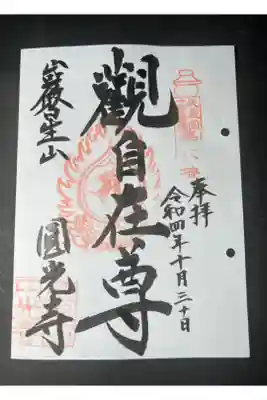 奉拝
令和四年十月三十日
觀自在尊
山
圓光寺